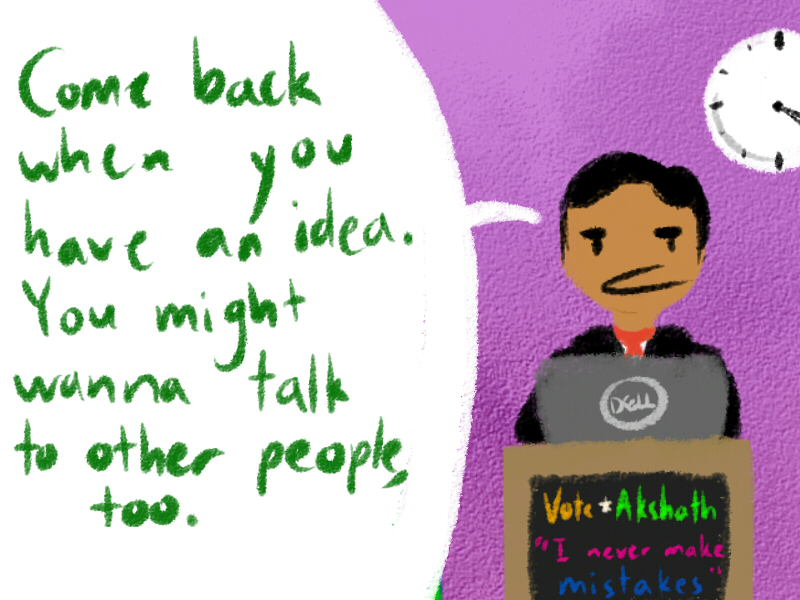 Come back
when you
have an idea.
You might
wanna talk
to other people,
too.
DELL
Vote * Akshath
"I never make
mistakes"